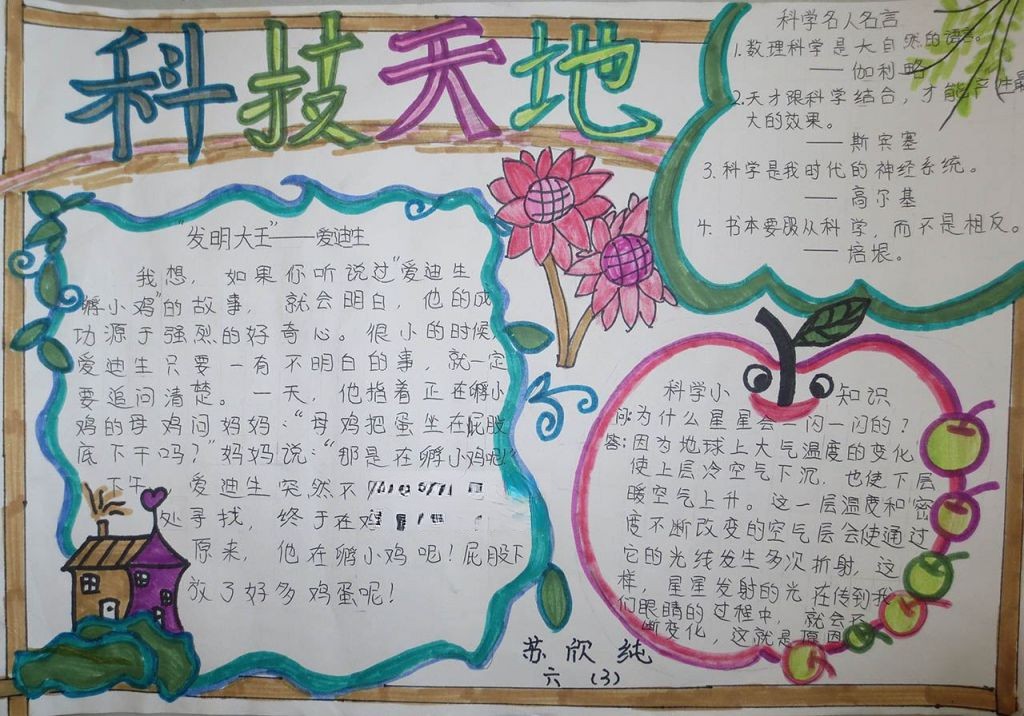 科技天地
"发明大王"——爱迪生
我想，如果你听说过"爱迪生
孵小鸡"的故事，就会明白，他的成
功源于强烈的好奇心。很小的时候，
爱迪生只要一有不明白的事，就一定
要追问清楚。一天，他指着正在孵小
鸡的母鸡问妈妈："母鸡把蛋坐在屁股
底下干吗？"妈妈说："那是在孵小鸡呢！"
下午，爱迪生突然不
处寻找，终于在
原来，他在孵小鸡呢！屁股下
放了好多鸡蛋呢！
科学名人名言
1.数理科学是大自然的语言。
——伽利略
2.天才跟科学结合，才能产生最
大的效果。
——斯宾塞
3.科学是我时代的神经系统。
——高尔基
4.书本要服从科学，而不是相反。
——培根。
科学小知识
为什么星星会一闪一闪的？
答：因为地球上大气温度的变化
使上层冷空气下沉，也使下层
暖空气上升。这一层温度和密
度不断改变的空气层会使通过
它的光线发生多次折射，这
样，星星发射的光在传到我
们眼睛的过程中，就会
断变化，这就是原因
苏欣纯
六（3）